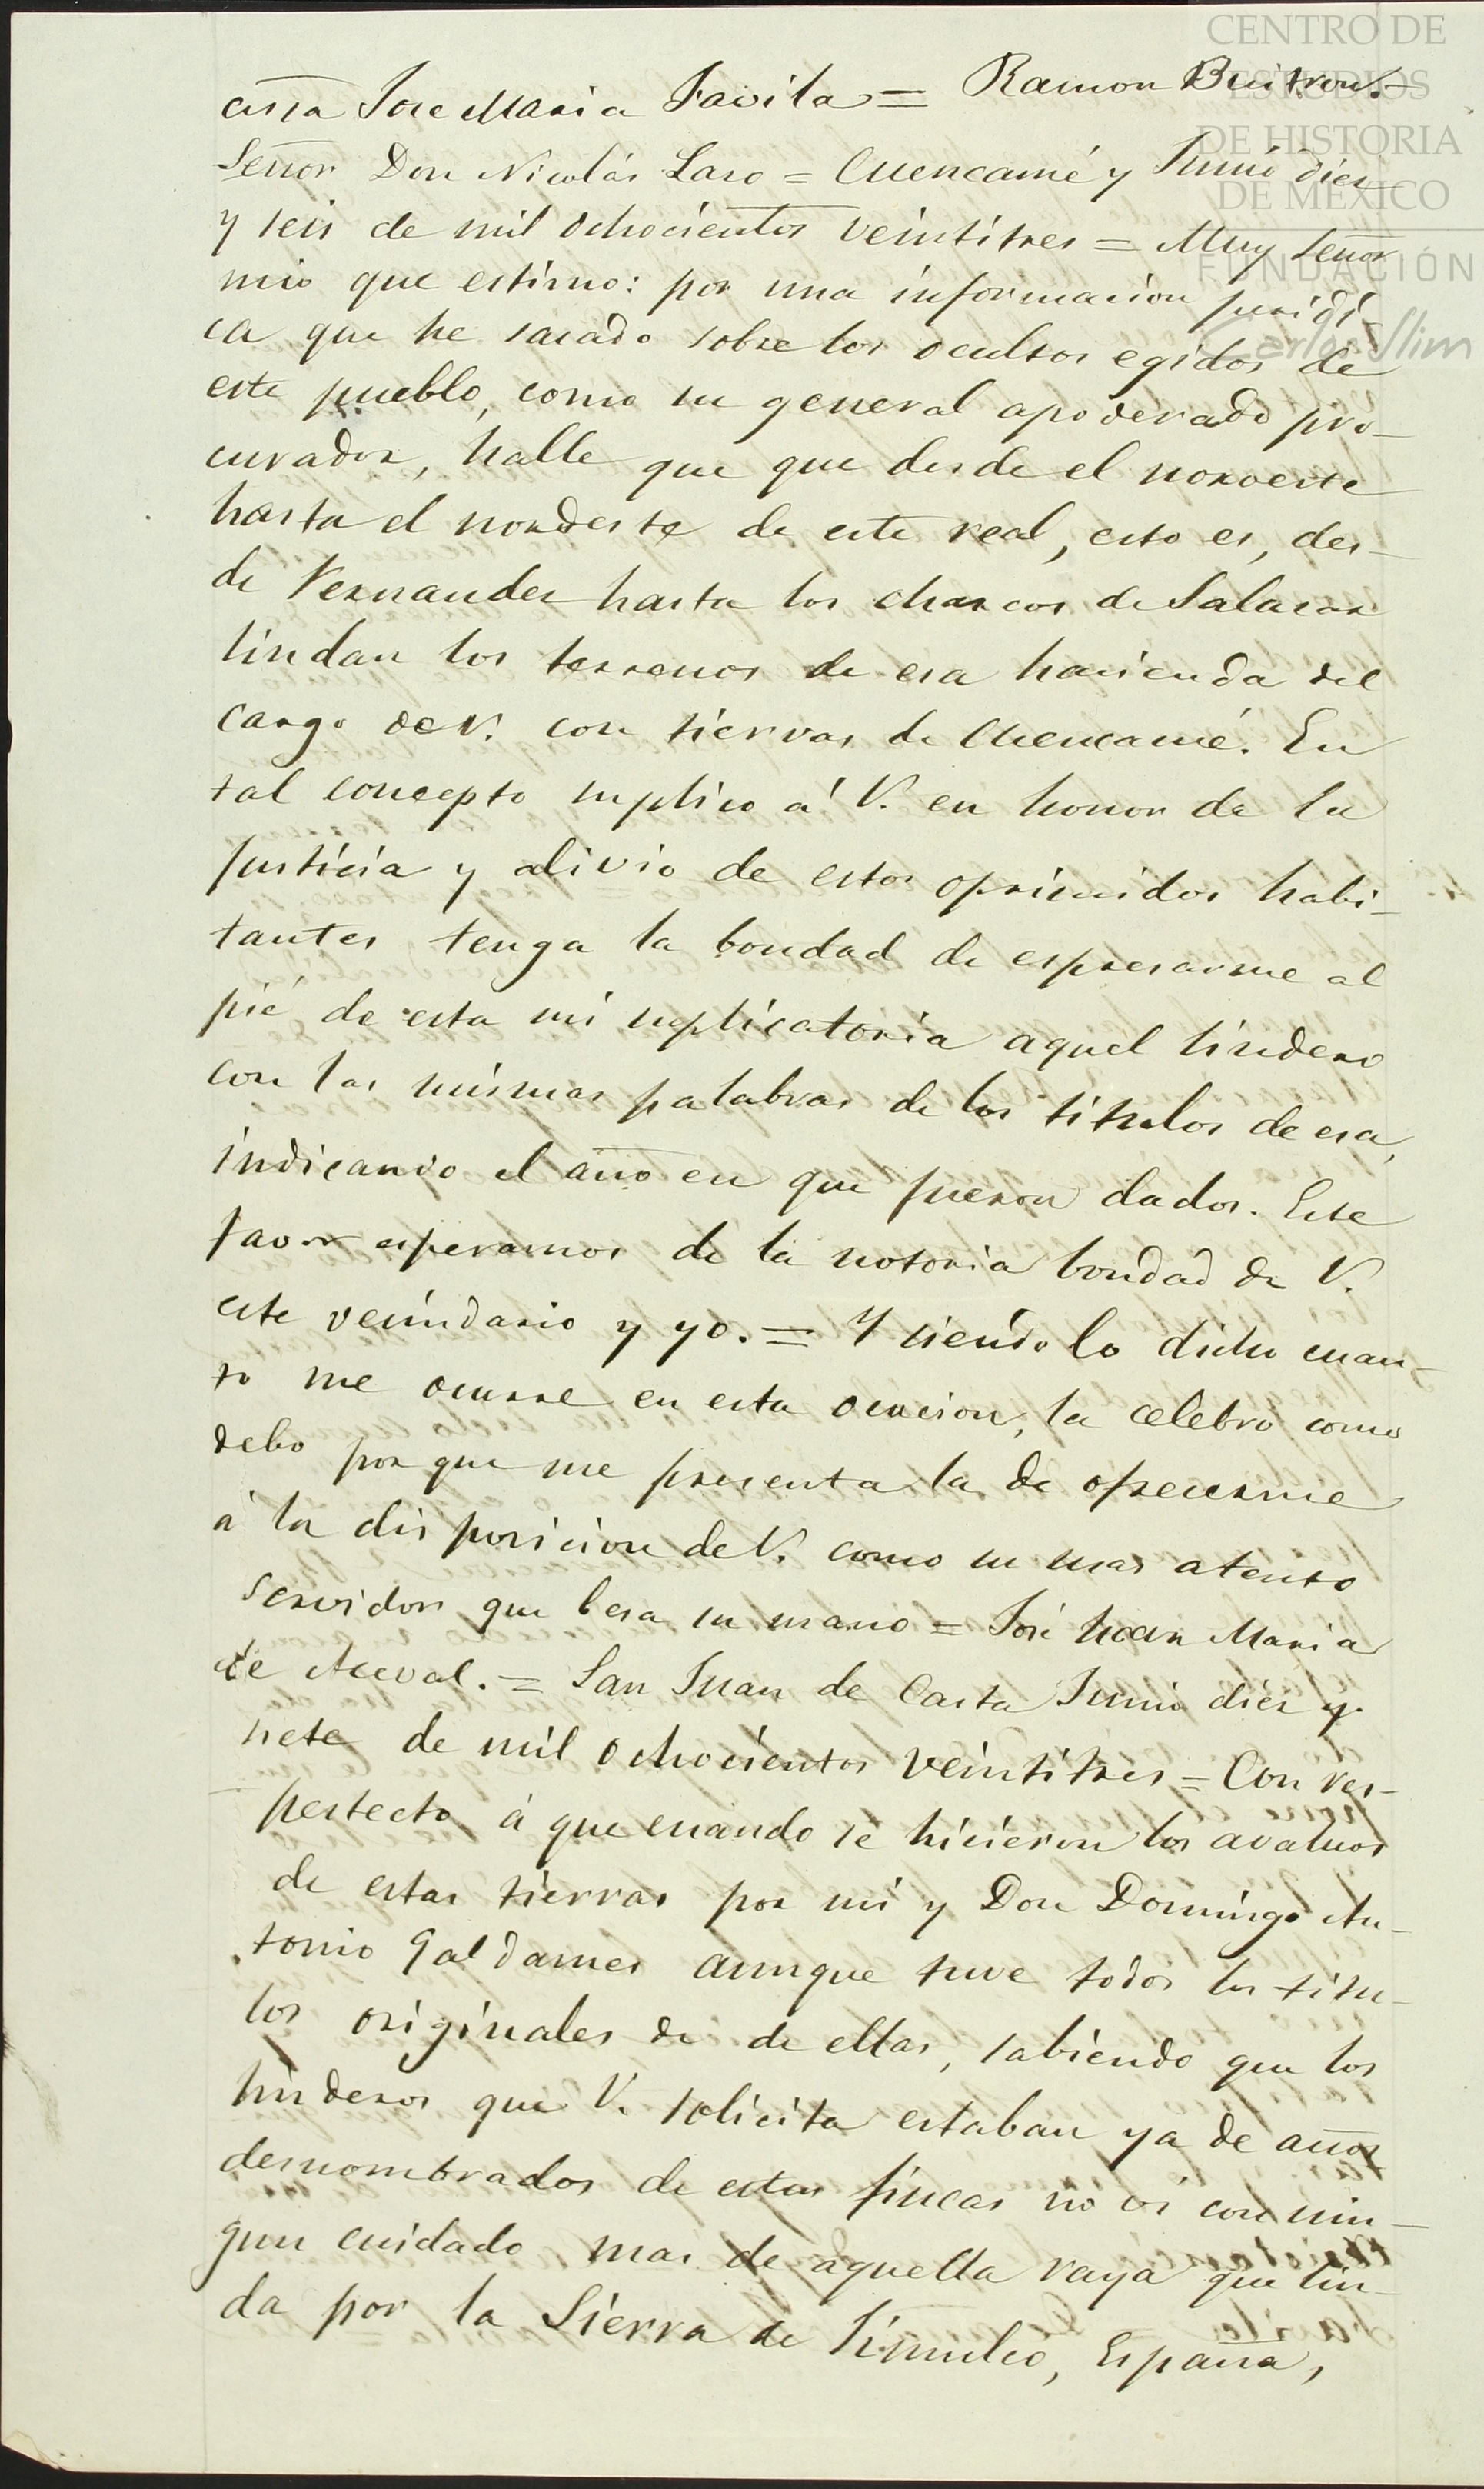 CENTRO DE
ESTUDIOS
DE HISTORIA
DE MÉXICO
FUNDACIÓN
Carlos Slim
Jose Maria Favila = Ramon Buitron.=
Señor Don Nicolás Laso = Cuencamé y Junio diez
y seis de mil ochocientos veintitres = Muy señor
mio que estimo: por una informacion juridi-
ca que he sacado sobre los ocultos egidos de
este pueblo, como su general apoderado pro-
curador, halle que que desde el noroeste
hasta el nordeste de este real, esto es, des-
de Fernandez hasta los charcos de Salazar
lindan los terrenos de esa hacienda del
cargo de V. con tierras de Cuencamé. En
tal concepto suplico á V. en honor de la
justicia y alivio de estos oprimidos habi-
tantes tenga la bondad de espresarme al
pié de esta mi suplicatoria aquel lindero
con las mismas palabras de los titulos de esa,
indicando el año en que fueron dados. Este
favor esperamos de la notoria bondad de V.
este vecindario y yo. = Y siendo lo dicho cuan-
to me ocurre en esta ocacion, la celebro como
debo por que me presenta la de ofrecerme
á la disposicion de V. como su mas atento
servidor que besa su mano = José Juan Maria
de Aceval. = San Juan de Casta Junio diez y
siete de mil ochocientos veintitres = Con res-
pestecto á que cuando se hicieron los avaluos
de estas tierras por mi y Don Domingo An-
tonio Galdames aunque tuve todos los titu-
los originales de de ellas, sabiendo que los
linderos que V. solicita estaban ya de años
desmombrados de estas fincas no vi con nin-
gun cuidado mas de aquella raya que lin-
da por la Sierra de Jimulco, España,